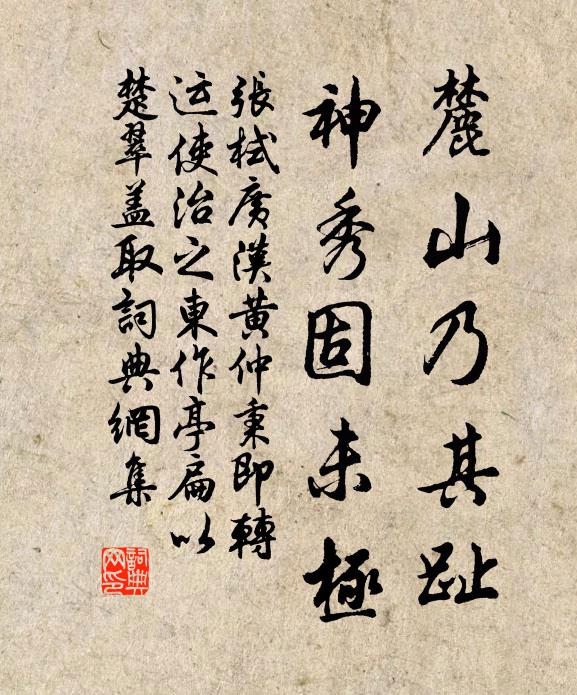 麓山乃其趾
神秀固未極
張栻廣漢黄仲秉即轉
运使治之東作亭扁以
楚翠盖取詞典網集
詞典网印